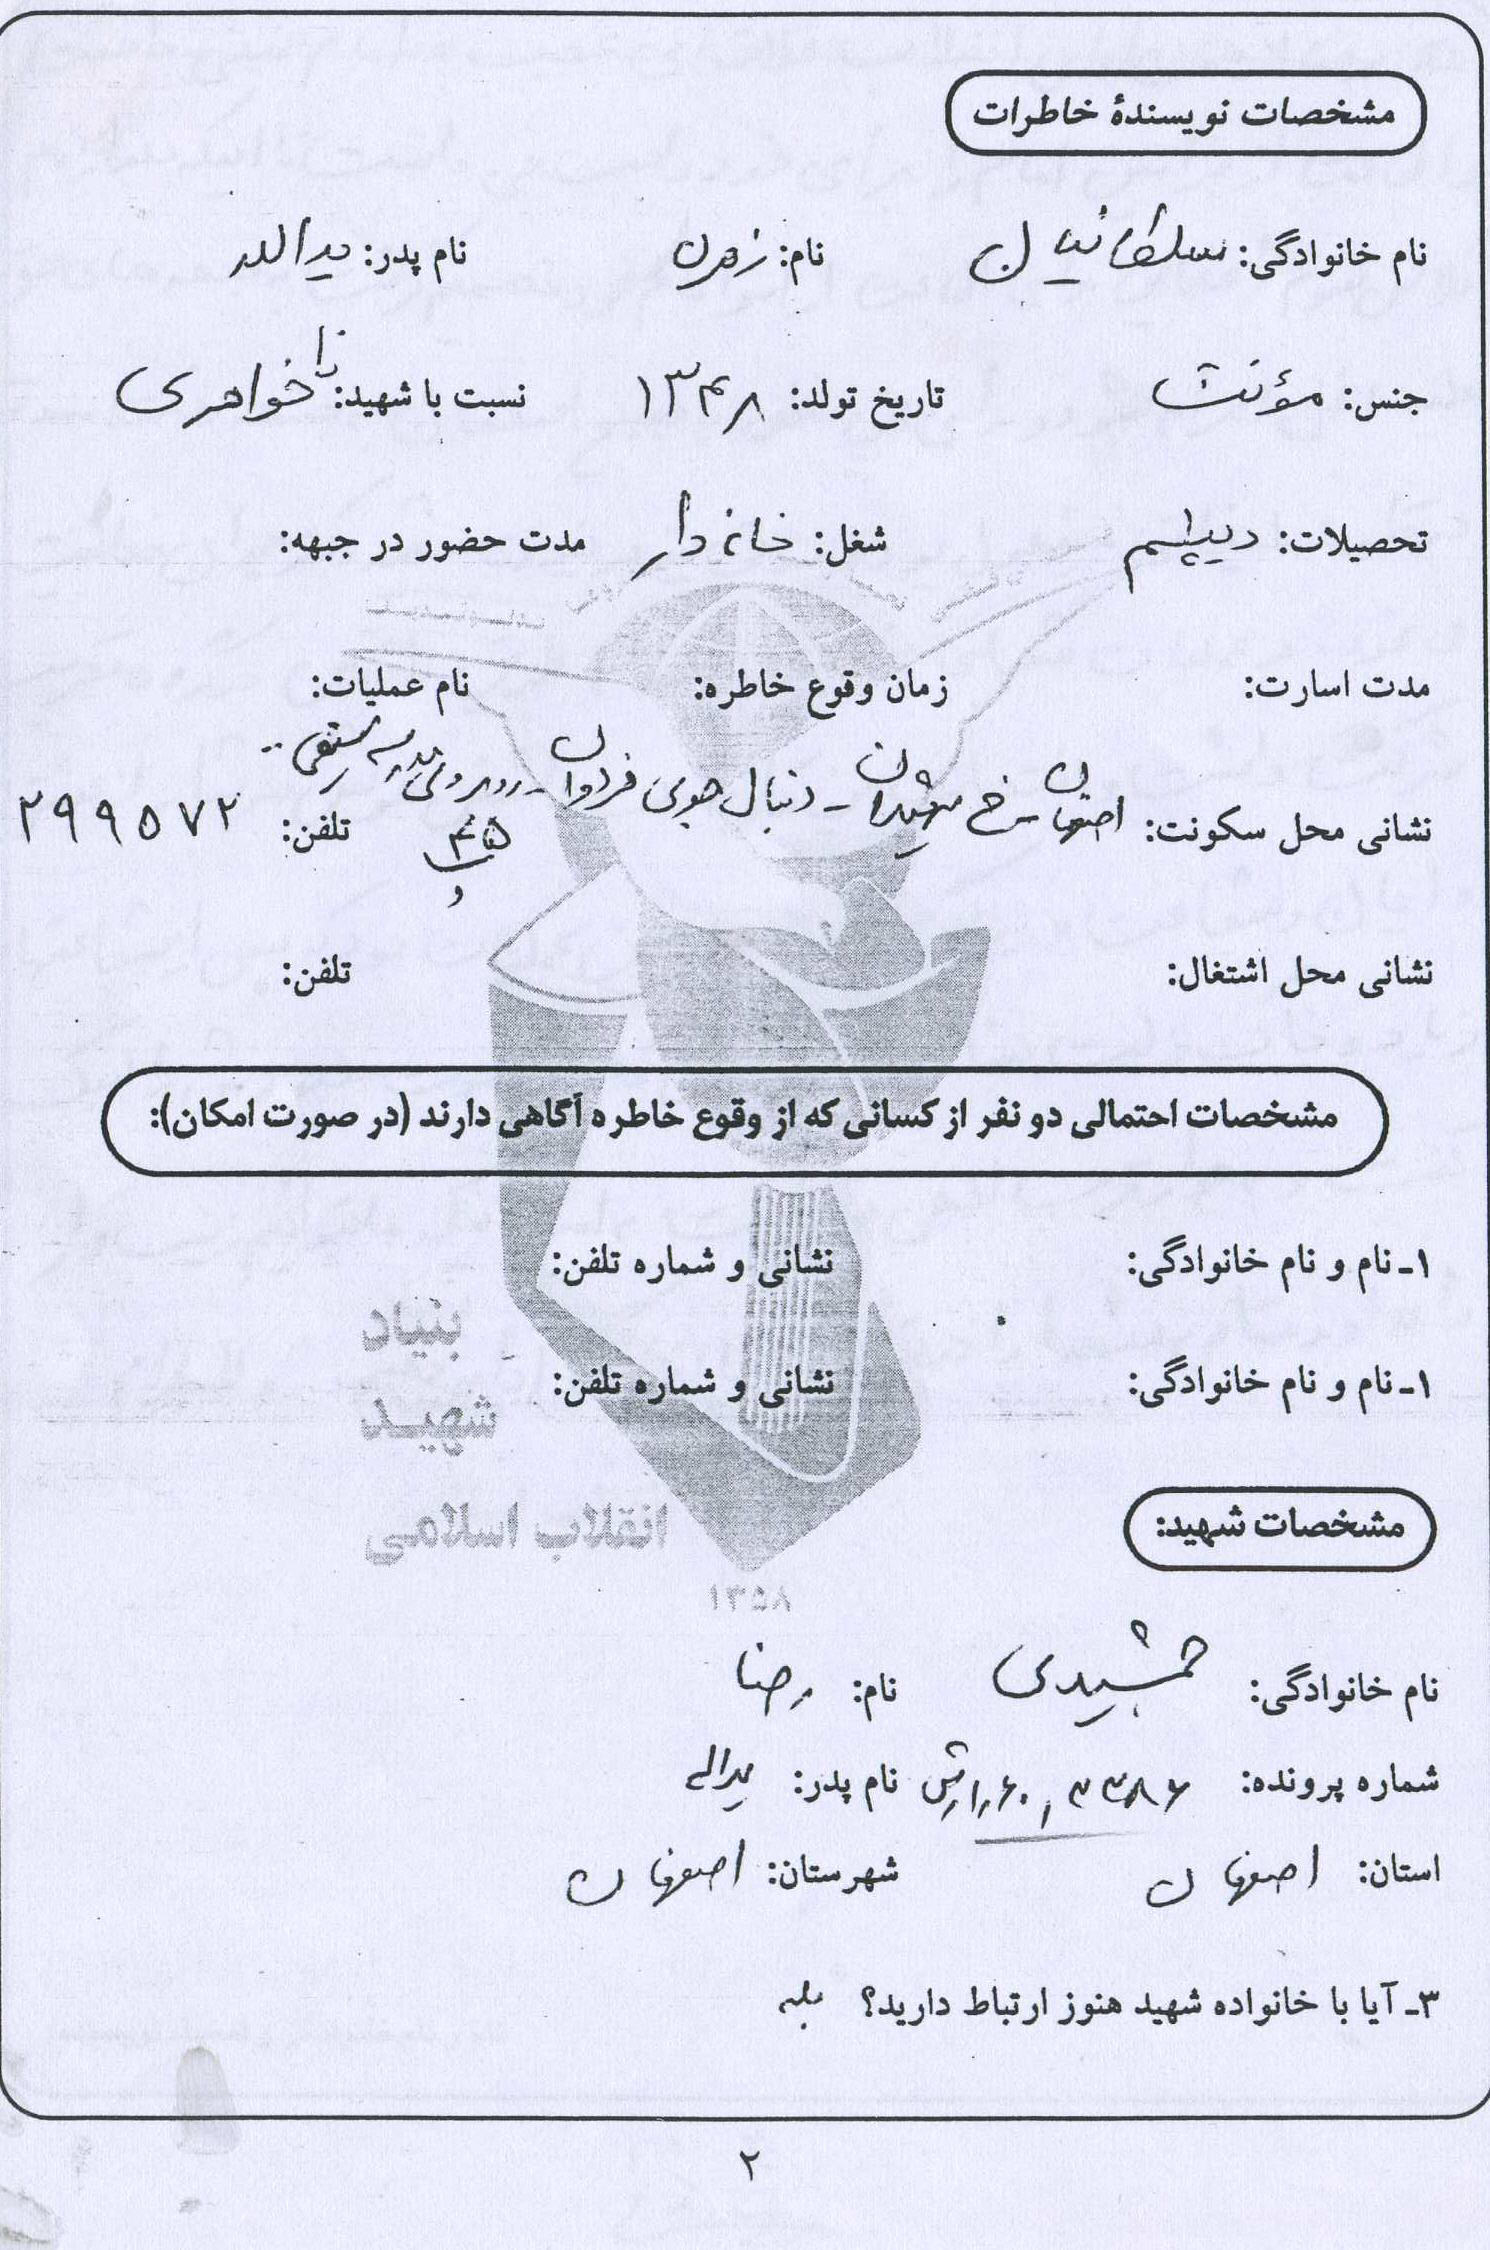 مشخصات نویسندهٔ خاطرات
نام خانوادگی: سلطانیان نام: زهره نام پدر: یدالله
جنس: مؤنث تاریخ تولد: ۱۳۴۸ نسبت با شهید: نا خواهری
تحصیلات: دیپلم شغل: خانه دار مدت حضور در جبهه:
مدت اسارت: زمان وقوع خاطره: نام عملیات:
نشانی محل سکونت: اصفهان - خ - دنبال جوی فردوان - روبروی تلفن: ۲۹۹۵۷۲
نشانی محل اشتغال: تلفن:
مشخصات احتمالی دو نفر از کسانی که از وقوع خاطره آگاهی دارند (در صورت امکان):
۱ـ نام و نام خانوادگی: نشانی و شماره تلفن:
۱ـ نام و نام خانوادگی: نشانی و شماره تلفن:
بنیاد
شهید
انقلاب اسلامی
۱۳۵۸
مشخصات شهید:
نام خانوادگی: جمشیدی نام: رضا
شماره پرونده: نام پدر: یداله
استان: اصفهان شهرستان: اصفهان
۳ـ آیا با خانواده شهید هنوز ارتباط دارید؟ بله
۲